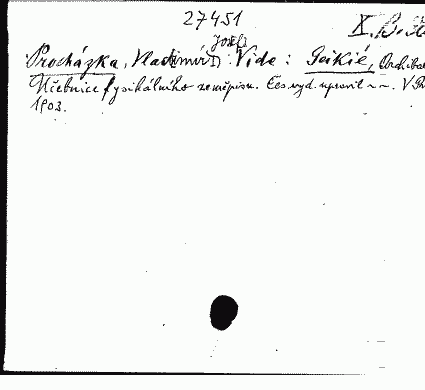 27451
X.B.
Josef
Procházka, Vladimír J. Vide: Geikie, Archiba
Učebnice fysikálního zeměpisu. Čes. vyd. upravil ~ ~. V Pr
1903.